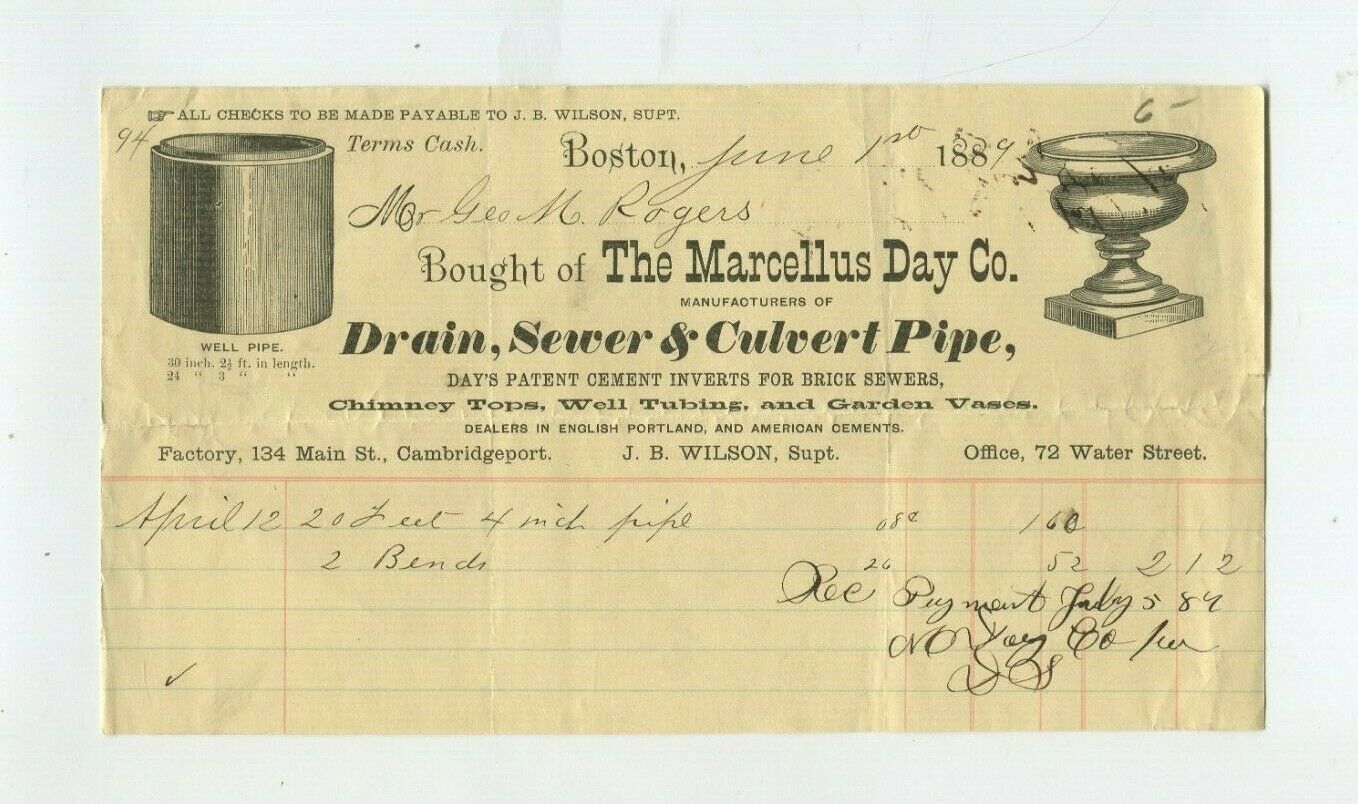 ☞ ALL CHECKS TO BE MADE PAYABLE TO J. B. WILSON, SUPT.
6-
94
Terms Cash.
Boston, June 1st 1889
Mr Geo M. Rogers
Bought of The Marcellus Day Co.
MANUFACTURERS OF
Drain, Sewer & Culvert Pipe,
WELL PIPE.
30 inch. 2½ ft. in length.
24 “ 3 “ “
DAY'S PATENT CEMENT INVERTS FOR BRICK SEWERS,
Chimney Tops, Well Tubing, and Garden Vases.
DEALERS IN ENGLISH PORTLAND, AND AMERICAN CEMENTS.
Factory, 134 Main St., Cambridgeport. J. B. WILSON, Supt. Office, 72 Water Street.
April 12 20 Feet 4 inch pipe 08c 160
2 Bends 26 52 2 12
Rec Payment July 5 89
Day Co per